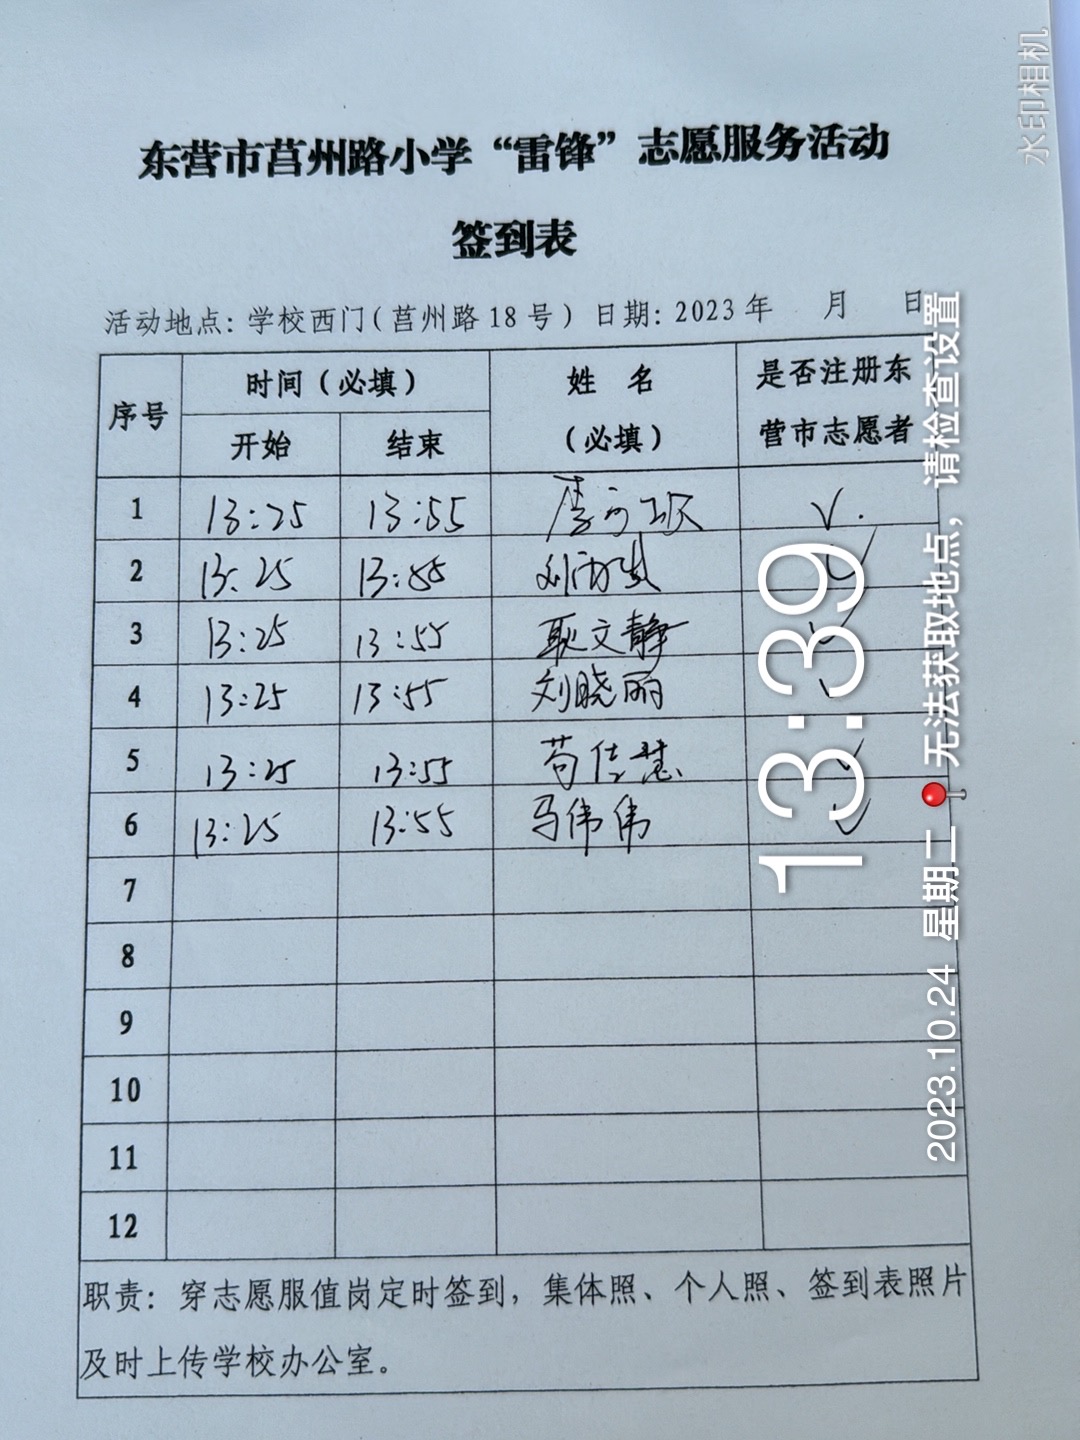 水印相机
东营市莒州路小学“雷锋”志愿服务活动
签到表
活动地点: 学校西门(莒州路18号) 日期: 2023年 月 日
序号 时间(必填) 姓 名 (必填) 是否注册东营市志愿者
开始 结束
1 13:25 13:55 √.
2 13:25 13:55 √
3 13:25 13:55 耿文静 √
4 13:25 13:55 刘晓丽 √
5 13:25 13:55 苟佳慧 √
6 13:25 13:55 马伟伟 √
7
8
9
10
11
12
职责: 穿志愿服值岗定时签到, 集体照、个人照、签到表照片
及时上传学校办公室。
13:39
2023.10.24 星期二 无法获取地点，请检查设置